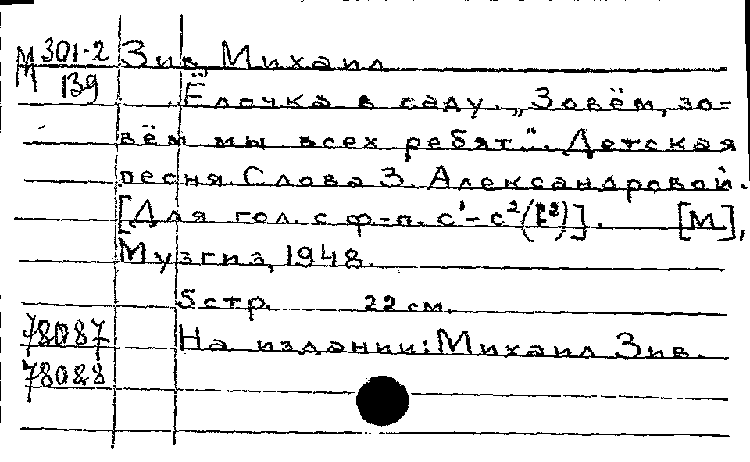 М 301-2 Зив Михаил
М 139 Ёлочка в саду. „Зовём, зо-
вём мы всех ребят". Детская
песня. Слова З. Александровой.
[Для гол. с ф-п. c¹-c²(e²)]. [М],
Музгиз, 1948.
5 стр. 22 см.
78087 На издании: Михаил Зив.
78088